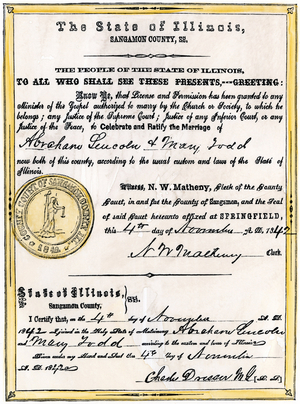 The State of Illinois,
SANGAMON COUNTY, SS.
THE PEOPLE OF THE STATE OF ILLINOIS,
TO ALL WHO SHALL SEE THESE PRESENTS,—GREETING:
Know Ye, that License and Permission has been granted to any
Minister of the Gospel authorized to marry by the Church or Society, to which he
belongs; any Justice of the Supreme Court; Justice of any Inferior Court, or any
Justice of the Peace, to Celebrate and Ratify the Marriage of
Abraham Lincoln & Mary Todd
now both of this county, according to the usual custom and laws of the State of
Illinois.
Witness, N. W. Matheny, Clerk of the County
Court, in and for the County of Sangamon, and the Seal
of said Court hereunto affixed at SPRINGFIELD,
this 4th day of November A. D. 1842
N W Matheny Clerk.
COUNTY COURT OF SANGAMON COUNTY, ILL.
State of Illinois, SS.
Sangamon County,
I Certify that, on the 4th day of November A. D.
1842 I joined in the Holy State of Matrimony Abraham Lincoln
and Mary Todd according to the custom and laws of Illinois
Given under my Hand and Seal this 4th day of November
A. D. 1842
Charles Dresser